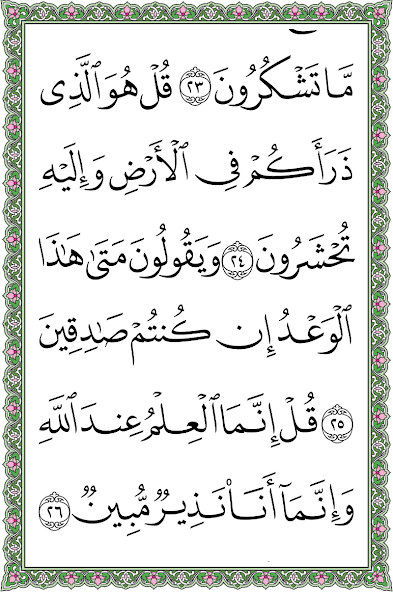 مَّا تَشْكُرُونَ ٢٣ قُلْ هُوَ ٱلَّذِى
ذَرَأَكُمْ فِى ٱلْأَرْضِ وَإِلَيْهِ
تُحْشَرُونَ ٢٤ وَيَقُولُونَ مَتَىٰ هَٰذَا
ٱلْوَعْدُ إِن كُنتُمْ صَٰدِقِينَ
٢٥ قُلْ إِنَّمَا ٱلْعِلْمُ عِندَ ٱللَّهِ
وَإِنَّمَآ أَنَا۠ نَذِيرٌ مُّبِينٌ ٢٦